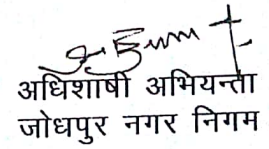 अधिशाषी अभियन्ता
जोधपुर नगर निगम